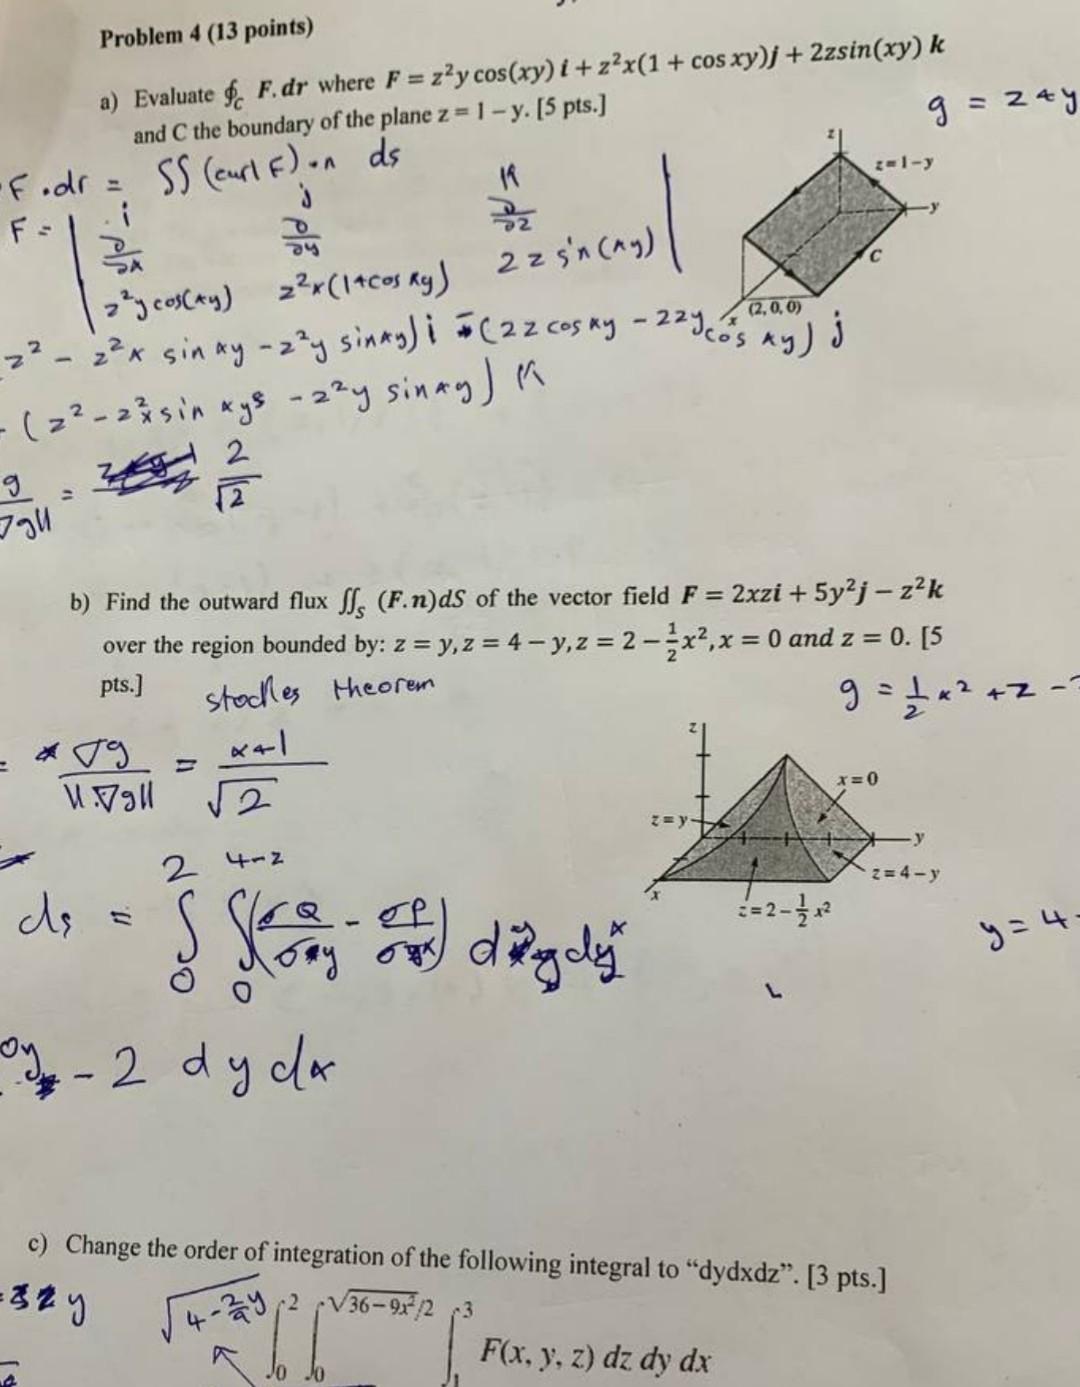 Problem 4 (13 points)
a) Evaluate ∮_C F.dr where F = z²y cos(xy) i + z²x(1 + cos xy)j + 2zsin(xy) k
and C the boundary of the plane z = 1 – y. [5 pts.]
g = z + y
F . dr = ∫∫ (curl F) . n ds
F = | i j k
∂/∂x ∂/∂y ∂/∂z
z²y cos(xy) z²x(1+cos xy) 2z sin(xy) |
z
z=1-y
y
C
x
(2, 0, 0)
z² - z²x sin xy - z²y sin xy) i - (2z cos xy - 2zy cos xy) j
(z² - z²x sin xy - z²y sin xy) k
g / ∇g|| = 2/√2
b) Find the outward flux ∬_S (F.n)dS of the vector field F = 2xzi + 5y²j – z²k
over the region bounded by: z = y, z = 4 – y, z = 2 – ½x², x = 0 and z = 0. [5
pts.]
stockes theorem
g = ½ x² + z -
= ∇g / ||.∇g|| = x+1 / √2
z
x=0
z=y
y
z=4-y
x
z=2-½x²
ds = ∫₀² ∫₀^(4-z)
y = 4-
y - 2 dy dx
c) Change the order of integration of the following integral to “dydxdz”. [3 pts.]
y
∫₀² ∫₀^(√36−9x²/2) ∫₁³ F(x, y, z) dz dy dx